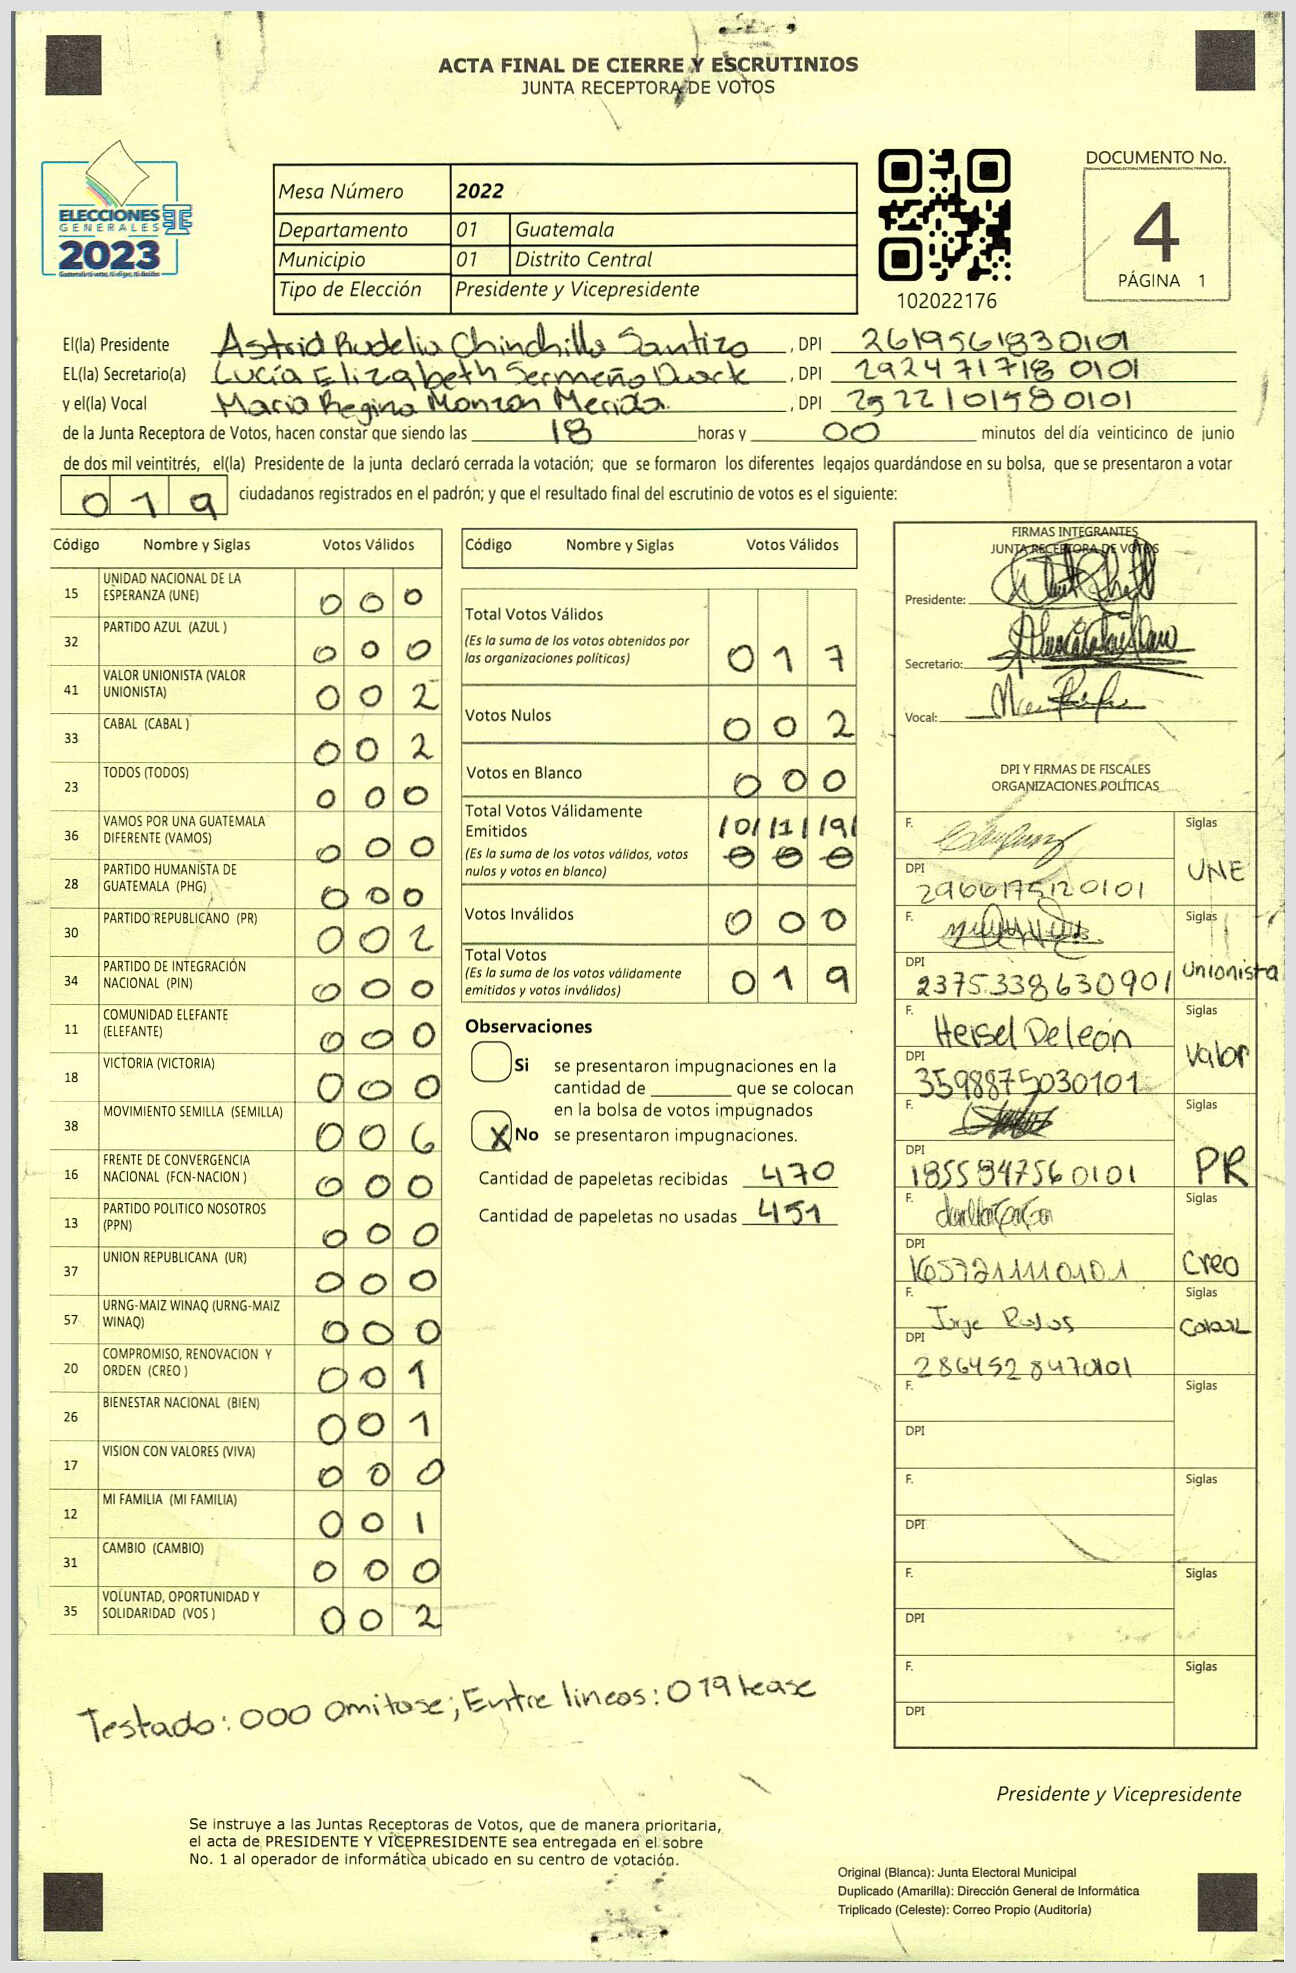 ACTA FINAL DE CIERRE Y ESCRUTINIOS
JUNTA RECEPTORA DE VOTOS
ELECCIONES
GENERALES
2023
Mesa Número 2022
Departamento 01 Guatemala
Municipio 01 Distrito Central
Tipo de Elección Presidente y Vicepresidente
102022176
DOCUMENTO No.
4
PÁGINA 1
El(la) Presidente Astrid Rudelia Chinchilla Santizo, DPI 2619561830101
EL(la) Secretario(a) Lucía Elizabeth Sermeño Duarte, DPI 2924717180101
y el(la) Vocal Maria Regina Monzon Merida, DPI 2922101580101
de la Junta Receptora de Votos, hacen constar que siendo las 18 horas y 00 minutos del día veinticinco de junio
de dos mil veintitrés, el(la) Presidente de la junta declaró cerrada la votación; que se formaron los diferentes legajos guardándose en su bolsa, que se presentaron a votar
019 ciudadanos registrados en el padrón; y que el resultado final del escrutinio de votos es el siguiente:
Código Nombre y Siglas Votos Válidos
15 UNIDAD NACIONAL DE LA ESPERANZA (UNE) 000
32 PARTIDO AZUL (AZUL ) 000
41 VALOR UNIONISTA (VALOR UNIONISTA) 002
33 CABAL (CABAL ) 002
23 TODOS (TODOS) 000
36 VAMOS POR UNA GUATEMALA DIFERENTE (VAMOS) 000
28 PARTIDO HUMANISTA DE GUATEMALA (PHG) 000
30 PARTIDO REPUBLICANO (PR) 002
34 PARTIDO DE INTEGRACIÓN NACIONAL (PIN) 000
11 COMUNIDAD ELEFANTE (ELEFANTE) 000
18 VICTORIA (VICTORIA) 000
38 MOVIMIENTO SEMILLA (SEMILLA) 006
16 FRENTE DE CONVERGENCIA NACIONAL (FCN-NACION ) 000
13 PARTIDO POLITICO NOSOTROS (PPN) 000
37 UNION REPUBLICANA (UR) 000
57 URNG-MAIZ WINAQ (URNG-MAIZ WINAQ) 000
20 COMPROMISO, RENOVACION Y ORDEN (CREO ) 001
26 BIENESTAR NACIONAL (BIEN) 001
17 VISION CON VALORES (VIVA) 000
12 MI FAMILIA (MI FAMILIA) 001
31 CAMBIO (CAMBIO) 000
35 VOLUNTAD, OPORTUNIDAD Y SOLIDARIDAD (VOS ) 002
Código Nombre y Siglas Votos Válidos
Total Votos Válidos 017
(Es la suma de los votos obtenidos por
las organizaciones políticas)
Votos Nulos 002
Votos en Blanco 000
Total Votos Válidamente
Emitidos /0/ /1/ /9/
(Es la suma de los votos válidos, votos 000
nulos y votos en blanco)
Votos Inválidos 000
Total Votos 019
(Es la suma de los votos válidamente
emitidos y votos inválidos)
Observaciones
Si se presentaron impugnaciones en la
cantidad de ________ que se colocan
en la bolsa de votos impugnados
X No se presentaron impugnaciones.
Cantidad de papeletas recibidas 470
Cantidad de papeletas no usadas 451
FIRMAS INTEGRANTES
JUNTA RECEPTORA DE VOTOS
Presidente:
Secretario:
Vocal:
DPI Y FIRMAS DE FISCALES
ORGANIZACIONES POLÍTICAS
F. Siglas UNE
DPI 2966175120101
F. Siglas Unionista
DPI 2375338630901
F. Hersel Deleón Siglas Valor
DPI 3598875030101
F. Siglas PR
DPI 1855847560101
F. Siglas Creo
DPI 1657211110101
F. Jorge Rosas Siglas CABAL
DPI 2864528470101
F. Siglas
DPI
F. Siglas
DPI
F. Siglas
DPI
F. Siglas
DPI
Testado: 000 Omitase; Entre lineas: 019 lease
Presidente y Vicepresidente
Se instruye a las Juntas Receptoras de Votos, que de manera prioritaria,
el acta de PRESIDENTE Y VICEPRESIDENTE sea entregada en el sobre
No. 1 al operador de informática ubicado en su centro de votación.
Original (Blanca): Junta Electoral Municipal
Duplicado (Amarilla): Dirección General de Informática
Triplicado (Celeste): Correo Propio (Auditoría)